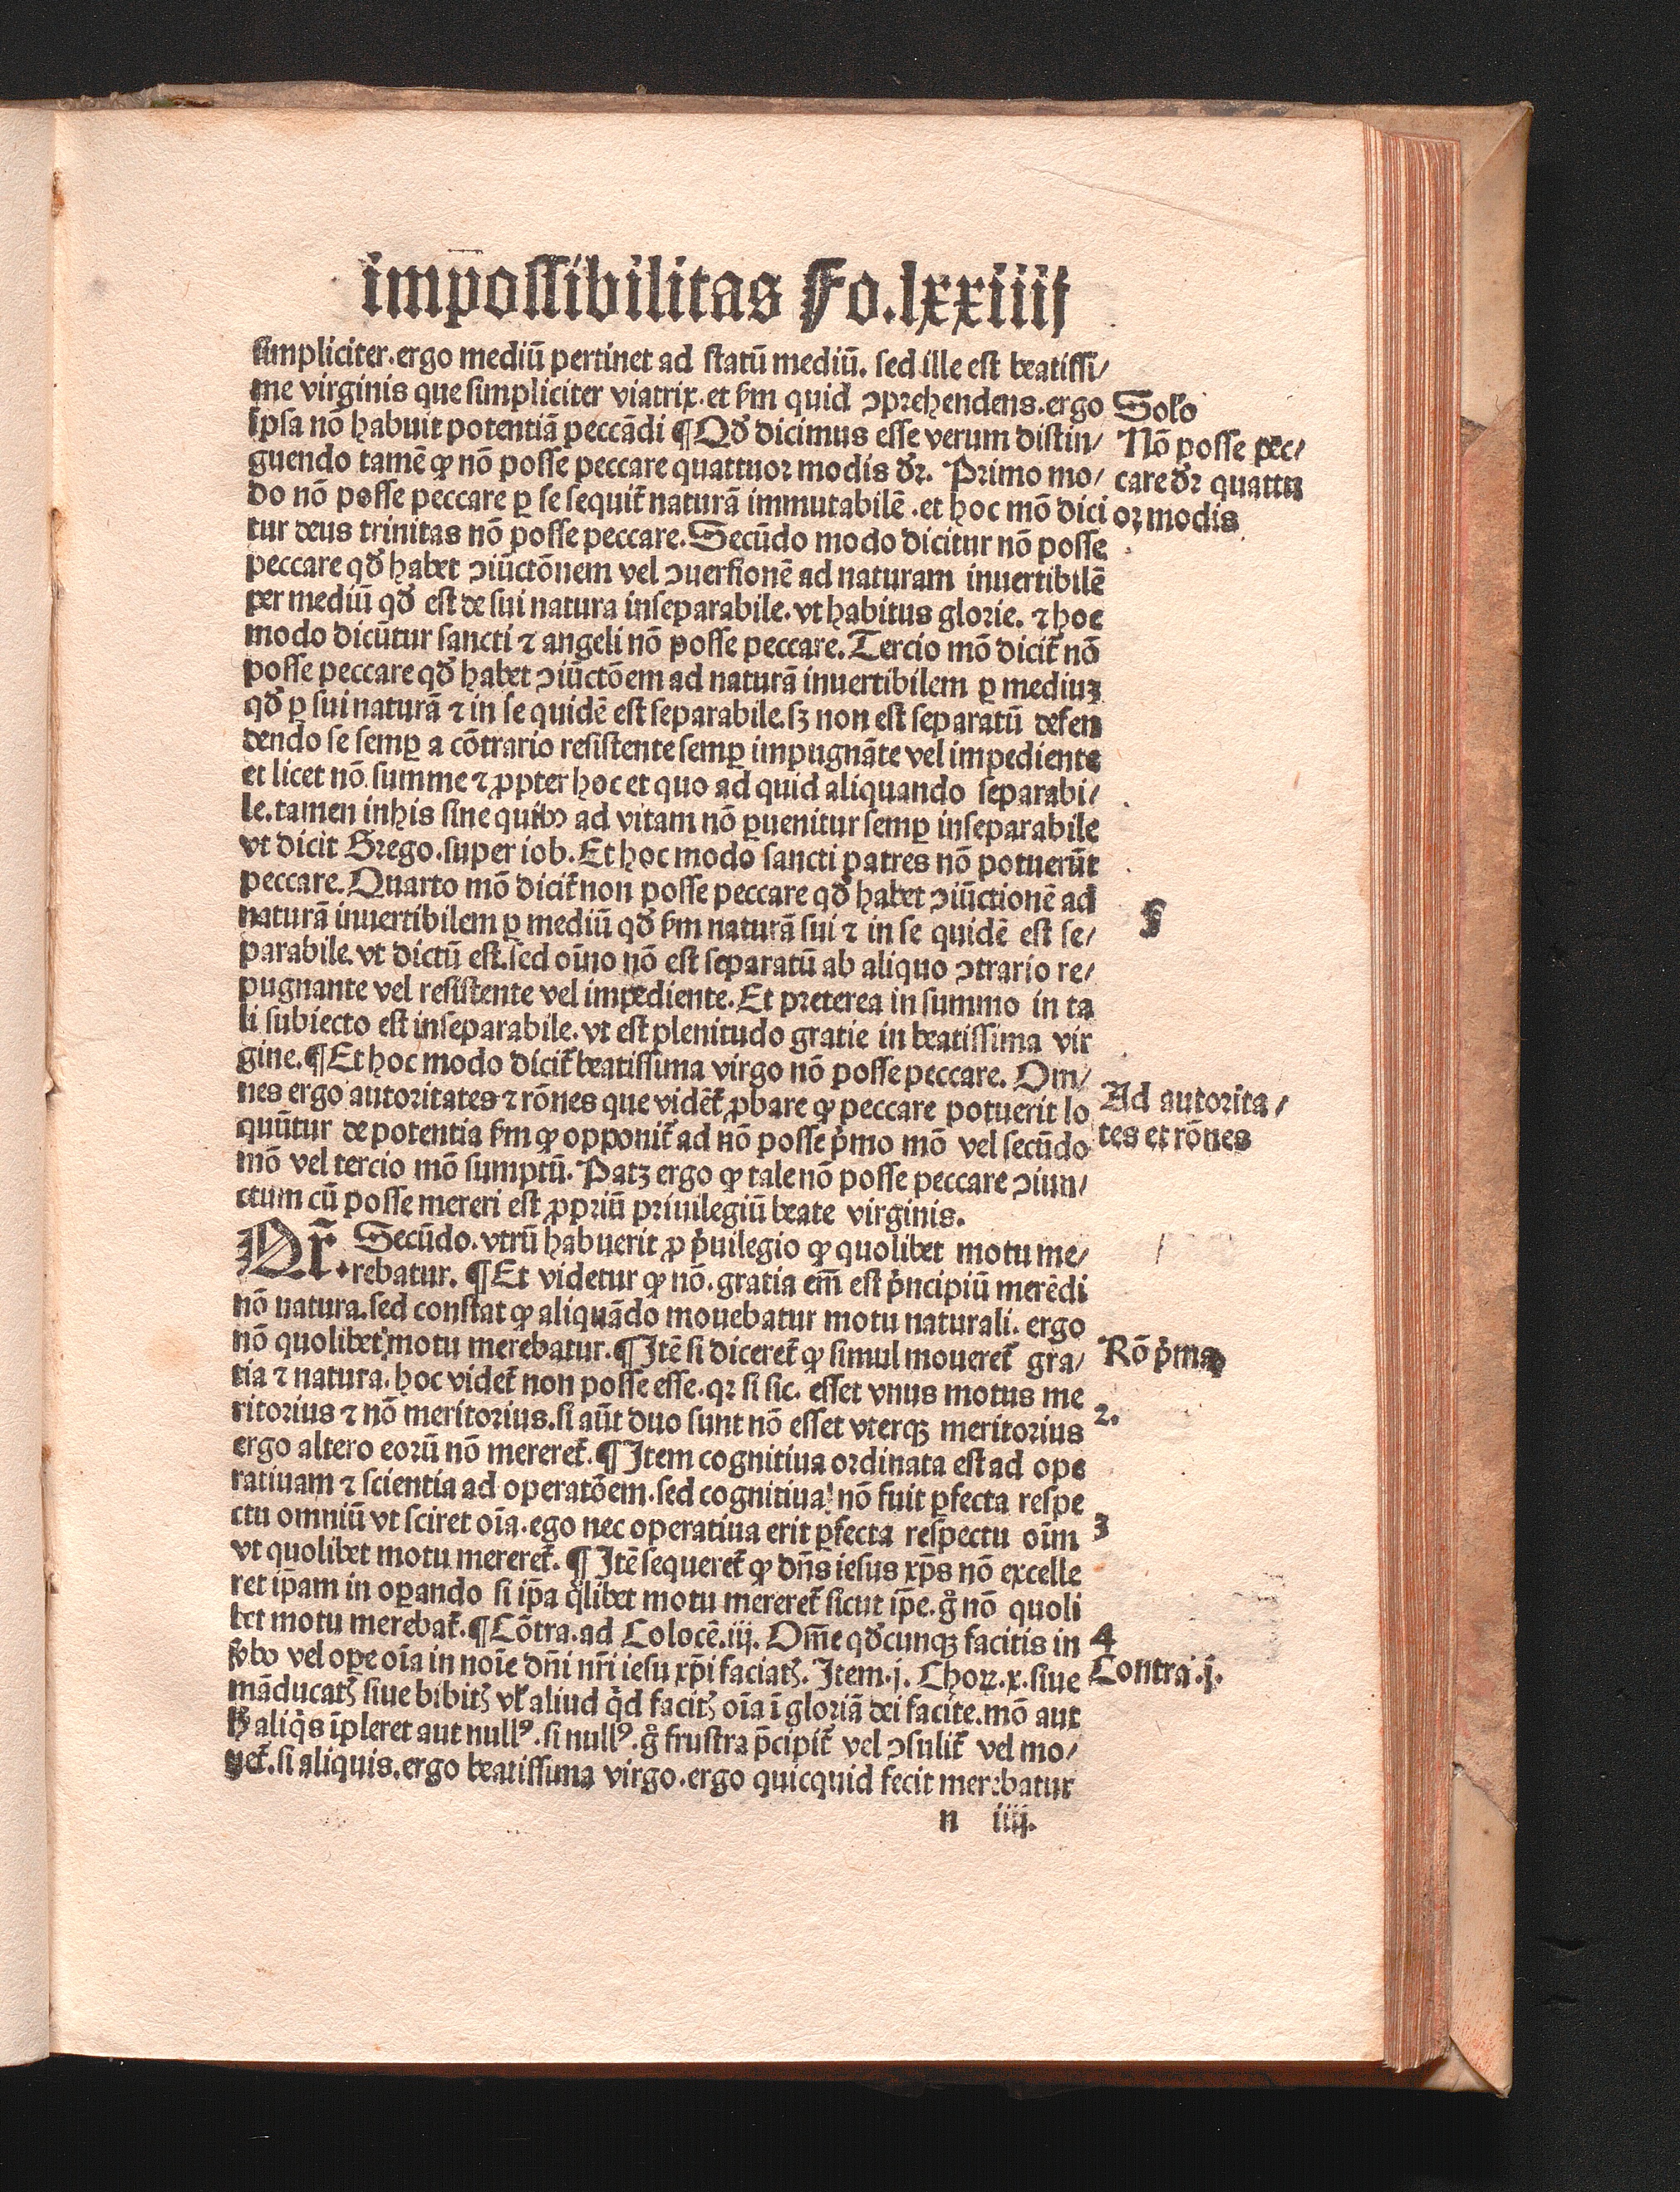 impossibilitas Fo.lxxiiij
simpliciter.ergo mediū pertinet ad statū mediū. sed ille est beatissi/
me virginis que simpliciter viatrix.et ẜm quid ɔprehendens.ergo
ipsa nō habuit potentiā peccādi ¶ Qđ dicimus esse verum distin/
guendo tamē ꝙ nō posse peccare quattuor modis dr̄. Primo mo/
do nō posse peccare ꝑ se sequit᷑ naturā immutabilē .et hoc mō dici
tur deus trinitas nō posse peccare. Secūdo modo dicitur nō posse
peccare qđ habet ɔiūctōnem vel ɔuersionē ad naturam inuertibilē
per mediū qđ est de sui natura inseparabile.vt habitus glorie. ⁊ hoc
modo dicūtur sancti ⁊ angeli nō posse peccare. Tercio mō dicit᷑ nō
posse peccare qđ habet ɔiūctōem ad naturā inuertibilem ꝑ mediuꝫ
qđ ꝑ sui naturā ⁊ in se quidē est separabile.sꝫ non est separatū defen
dendo se semꝑ a cōtrario resistente semꝑ impugnāte vel impediente
et licet nō summe ⁊ ꝓpter hoc et quo ad quid aliquando separabi/
le.tamen inhis sine quibꝰ ad vitam nō ꝑuenitur semꝑ inseparabile
vt dicit Grego.super iob. Et hoc modo sancti patres nō potuerūt
peccare. Quarto mō dicit᷑ non posse peccare qđ habet ɔiūctionē ad
naturā inuertibilem ꝑ mediū qđ ẜm naturā sui ⁊ in se quidē est se/
parabile.vt dictū est.sed oīno nō est separatū ab aliquo ɔtrario re/
pugnante vel resistente vel impediente. Et preterea in summo in ta
li subiecto est inseparabile.vt est plenitudo gratie in beatissima vir
gine. ¶ Et hoc modo dicit᷑ beatissima virgo nō posse peccare. Om/
nes ergo autoritates ⁊ rōnes que vidēt᷑ ꝓbare ꝙ peccare potuerit lo
quūtur de potentia ẜm ꝙ opponit᷑ ad nō posse p̄mo mō vel secūdo
mō vel tercio mō sumptū. Patꝫ ergo ꝙ tale nō posse peccare ɔiun/
ctum cū posse mereri est ꝓpriū priuilegiū beate virginis.
Qr̄. Secūdo.vtrū habuerit ꝓ p̄uilegio ꝙ quolibet motu me/
rebatur. ¶ Et videtur ꝙ nō.gratia em̄ est p̄ncipiū merēdi
nō natura.sed constat ꝙ aliquādo mouebatur motu naturali. ergo
nō quolibet motu merebatur. ¶ Itē si diceret᷑ ꝙ simul moueret᷑ gra/
tia ⁊ natura.hoc videt᷑ non posse esse.qꝛ si sic. esset vnus motus me
ritorius ⁊ nō meritorius.si aūt duo sunt nō esset vterqꝫ meritorius
ergo altero eorū nō mereret᷑. ¶ Item cognitiua ordinata est ad ope
ratiuam ⁊ scientia ad operatōem.sed cognitiua nō fuit ꝑfecta respe
ctu omniū vt sciret oīa.ego nec operatiua erit ꝑfecta respectu oīm
vt quolibet motu mereret᷑. ¶ Itē sequeret᷑ ꝙ dn̄s iesus xp̄s nō excelle
ret ip̄am in oꝑando si ip̄a q̄libet motu mereret᷑ sicut ip̄e.gͦ nō quoli
bet motu merebat᷑. ¶ Cōtra.ad Colocē.iij. Om̄e qđcunqꝫ facitis in
ṽbo vel oꝑe oīa in noīe dn̄i nr̄i iesu xp̄i faciatꝭ. Item.j. Choꝝ.x.siue
māducatꝭ siue bibitꝭ vl̕ aliud qͥd facitꝭ oīa ī gloriā dei facite.mō aut
h̄ aliqͥs īpleret aut nullꝰ.si nullꝰ.gͦ frustra p̄cipit᷑ vel ɔsulit᷑ vel mo/
uet᷑.si aliquis.ergo beatissima virgo.ergo quicquid fecit merebatur
n iiij.
Solo
Nō posse pec/
care dr̄ quattu
or modis
Ad autorita/
tes et rōnes
Rō p̄ma
2.
3
4
Contra.j.